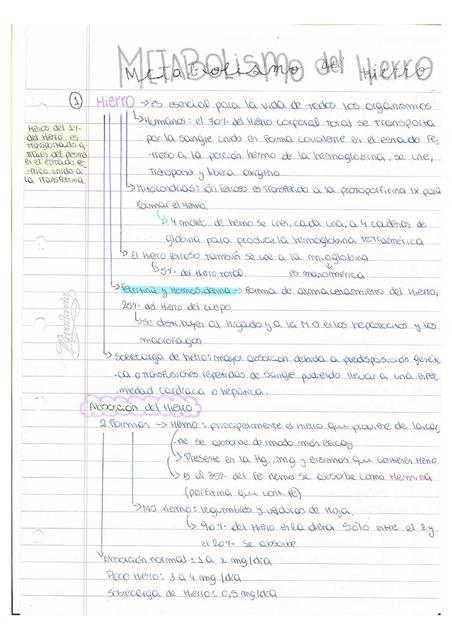 METABOLISMO del Hierro
Metabolismo del Hierro
① Hierro → es esencial para la vida de todos los organismos
Menos del 1%
del hierro es
transportado a
través del plasma
en el estado fé-
rrico unido a
la transferrina
↳ Humanos: el 70% del hierro corporal total se transporta
por la sangre unido en forma covalente en el estado fe-
rroso a la porción hemo de la hemoglobina, se une,
transporta y libera oxígeno
↳ Mitocondrias: ión ferroso es transferido a la protoporfirina IX para
formar el Hemo.
↳ 4 moléc. de hemo se unen, cada una, a 4 cadenas de
globina para producir la hemoglobina tetramérica
↳ El hierro ferroso también se une a la mioglobina
↳ 5% del hierro total. es monomérica
↳ Ferritina y Hemosiderina → forma de almacenamiento del Hierro,
25% del hierro del cuerpo
↳ Se distribuyen al hígado y a la M.O en los hepatocitos y los
macrófagos
↳ Sobrecarga de hierro: mayor absorción debida a predisposición genéti-
ca o transfusiones repetidas de sangre pudiendo llevar a una enfer-
medad cardíaca o hepática.
Absorción del Hierro
2 Formas → Hemo: principalmente el hierro que proviene de la car-
ne se absorbe de modo más eficaz
↳ Presente en la Hg, Mg y enzimas que contienen Hemo
↳ El 35% del Fe Hemo se absorbe como Hemina
(porfirina que cont. Fe)
↳ No Hemo: legumbres y verduras de hoja.
↳ 90% del hierro en la dieta. Sólo entre el 2 y
el 20% se absorbe
Absorción normal: 1 a 2 mg/día
Poco Hierro: 3 a 4 mg/día
Sobrecarga de Hierro: 0,5 mg/día